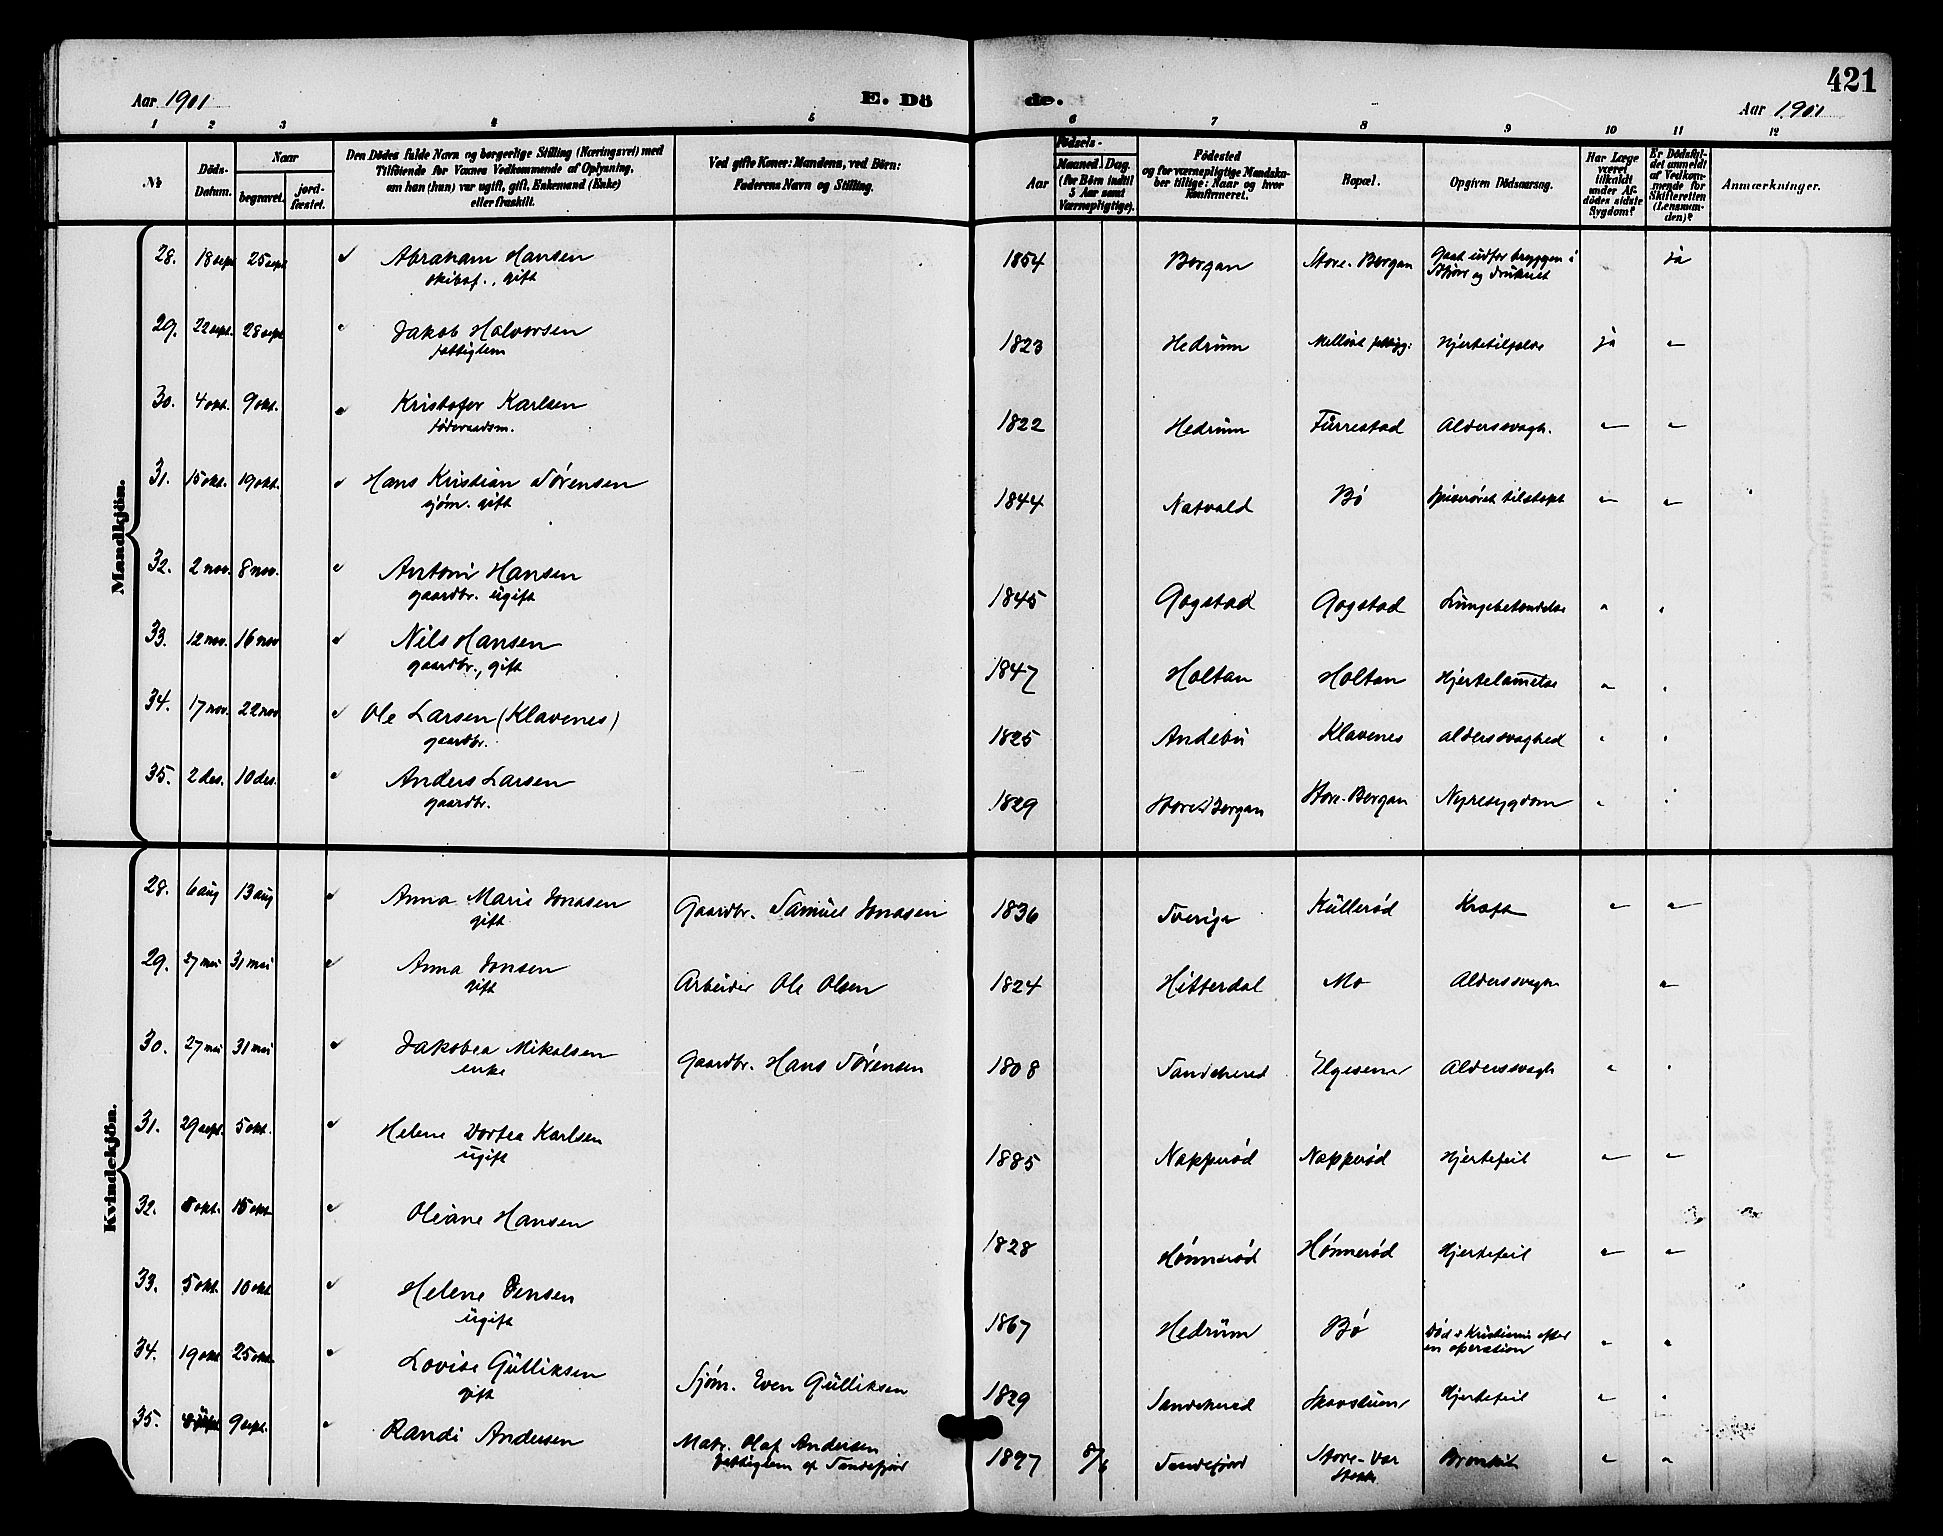 421
Aar 1901
E. Dö
de.
Aar 1901
1 2 3 4 5 6 7 8 9 10 11 12
No
Döds-Datum.
Naar
begravet.
jord-fæstet.
Den Dödes fulde Navn og borgerlige Stilling (Næringsvei) med
Tilföiende for Voxnes Vedkommende af Oplysning,
om han (hun) var ugift, gift, Enkemand (Enke)
eller fraskilt.
Ved gifte Koner: Mandens, ved Börn:
Faderens Navn og Stilling.
Födsels-
Aar
Maaned. Dag.
(for Börn indtil
5 Aar samt
Værnepligtige).
Födested
og for værnepligtige Mandska-
ber tillige: Naar og hvor
Konfirmeret.
Bopæl.
Opgiven Dödsaarsag.
Har Læge
været
tilkaldt
under Af-
dödes sidste
Sygdom?
Er Dödsfal-
det anmeldt
af Vedkom-
mende for
Skifteretten
(Lensman-
den)?
Anmærkninger.
Mandkjön.
28. 18 sept 25 sept Abraham Hansen 1854 Bergan Store-Bergan Gaat udfor bryggen i ja
skibsf., gift Stjøre og druknet
29. 22 sept. 28 sept Jakob Halvorsen 1823 Hedrum Hjertetilfælde ja "
fattiglem
30. 4 okt. 9 okt. Kristofer Karlsen 1822 Hedrum Furrestad Alderssvagh. " "
föderaadsm.
31. 15 okt. 19 okt. Hans Kristian Sørensen 1844 Natvald Bø Spiserøret tilstopt " "
sjøm. gift
32. 2 nov. 8 nov. Antoni Hansen 1845 Gogstad Gogstad Lungebetændelse " "
gaardbr. ugift
33. 12 nov. 16 nov Nils Hansen 1847 Holtan Holtan Hjertelamelse " "
gaardbr., gift
34. 17 nov. 22 nov Ole Larsen (Klavenes) 1825 Andebu Klavenes alderssvaghed " "
gaardbr.
35. 2 des. 10 des. Anders Larsen 1829 Store Bergan Store-Bergan Nyresygdom " "
gaardbr.
Kvindekjön.
28. 6 aug 13 aug Anna Marie Jonasen Gaardbr. Samuel Jonasen 1836 Sverige Kullerød Kræft " "
gift
29. 27 mai 31 mai Anna Jonsen Arbeider Ole Olsen 1824 Hitterdal Mo Alderssvagh "
gift
30. 27 mai 31 mai Jakobea Mikalsen Gaardbr. Hans Sørensen 1808 Sandeherred Elgesem Alderssvagh " "
enke
31. 29 sept. 5 okt. Helene Dortea Karlsen 1885 Napperød Napperød Hjertefeil " "
ugift
32. 8 okt. 15 okt. Oleane Hansen 1828 Hønnerød Hønnerød Hjertefeil " "
33. 5 okt. 10 okt Helene Jensen 1867 Hedrum Bø Død i Kristiania efter " "
ugift en operation
34. 19 okt 25 okt. Lovise Gulliksen Sjøm. Even Gulliksen 1829 Sandeherred Skovstuen Hjertefeil " "
gift
35. 9 sept. Randi Andersen Matr. Olaf Andersen 1897 8/6 Sandefjord Store-Var Bronkit " "
fattiglem af Sandefjord Stokk